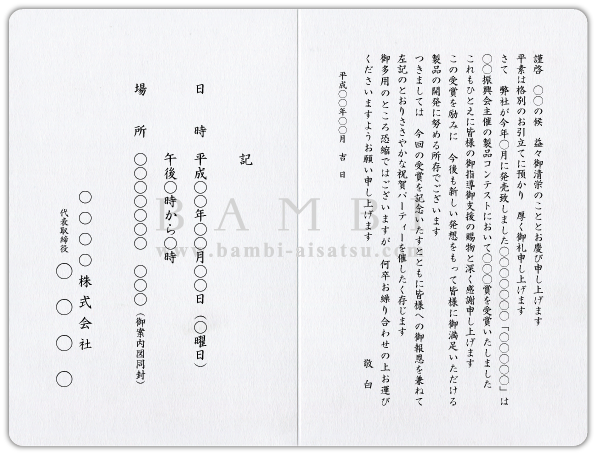 謹啓　〇〇の候　益々御清栄のこととお慶び申し上げます
平素は格別のお引立てに預かり　厚く御礼申し上げます
さて　弊社が今年〇月に発売致しました〇〇〇〇〇〇「〇〇〇〇〇」は
〇〇振興会主催の製品コンテストにおいて〇〇〇賞を受賞いたしました
これもひとえに皆様の御指導御支援の賜物と深く感謝申し上げます
この受賞を励みに　今後も新しい発想をもって皆様に御満足いただける
製品の開発に努める所存でございます
つきましては　今回の受賞を記念いたすとともに皆様への御報恩を兼ねて
左記のとおりささやかな祝賀パーティーを催したく存じます
御多用のところ恐縮ではございますが　何卒お繰り合わせの上お運び
くださいますようお願い申し上げます
敬　白
平成〇〇年〇〇月　吉　日
記
日　時　平成〇〇年〇〇月〇〇日（〇曜日）
午後〇時から〇時
場　所　〇〇〇〇〇〇　〇〇〇（御案内図同封）
〇〇〇〇株式会社
代表取締役　〇〇〇〇
BAMBI
www.bambi-aisatsu.com